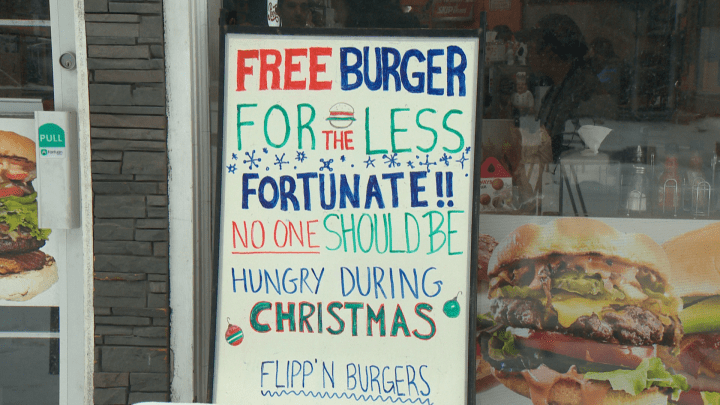 PULL
FREE BURGER
FOR THE LESS
FORTUNATE!!
NO ONE SHOULD BE
HUNGRY DURING
CHRISTMAS
FLIPP'N BURGERS